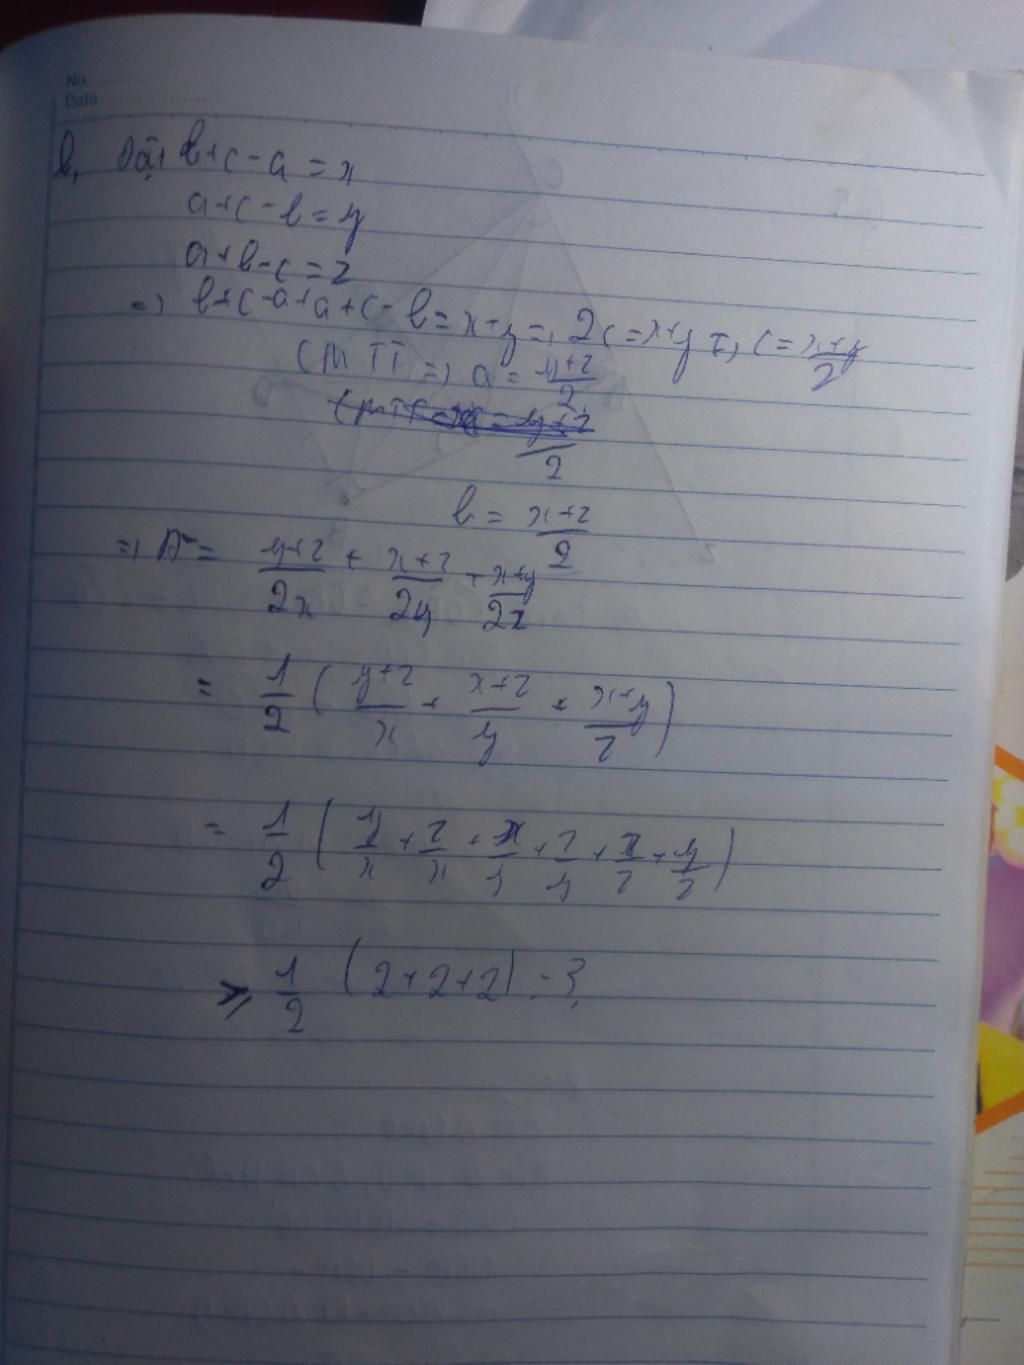 No.
Date
b, Đặt b+c-a = x
a+c-b = y
a+b-c = z
=> b+c-a+a+c-b = x+y => 2c = x+y => c = \frac{x+y}{2}
CMTT => a = \frac{y+z}{2}
b = \frac{x+z}{2}
=> A = \frac{y+z}{2x} + \frac{x+z}{2y} + \frac{x+y}{2z}
= \frac{1}{2} ( \frac{y+z}{x} + \frac{x+z}{y} + \frac{x+y}{z} )
= \frac{1}{2} ( \frac{y}{x} + \frac{z}{x} + \frac{x}{y} + \frac{z}{y} + \frac{x}{z} + \frac{y}{z} )
≥ \frac{1}{2} (2+2+2) = 3